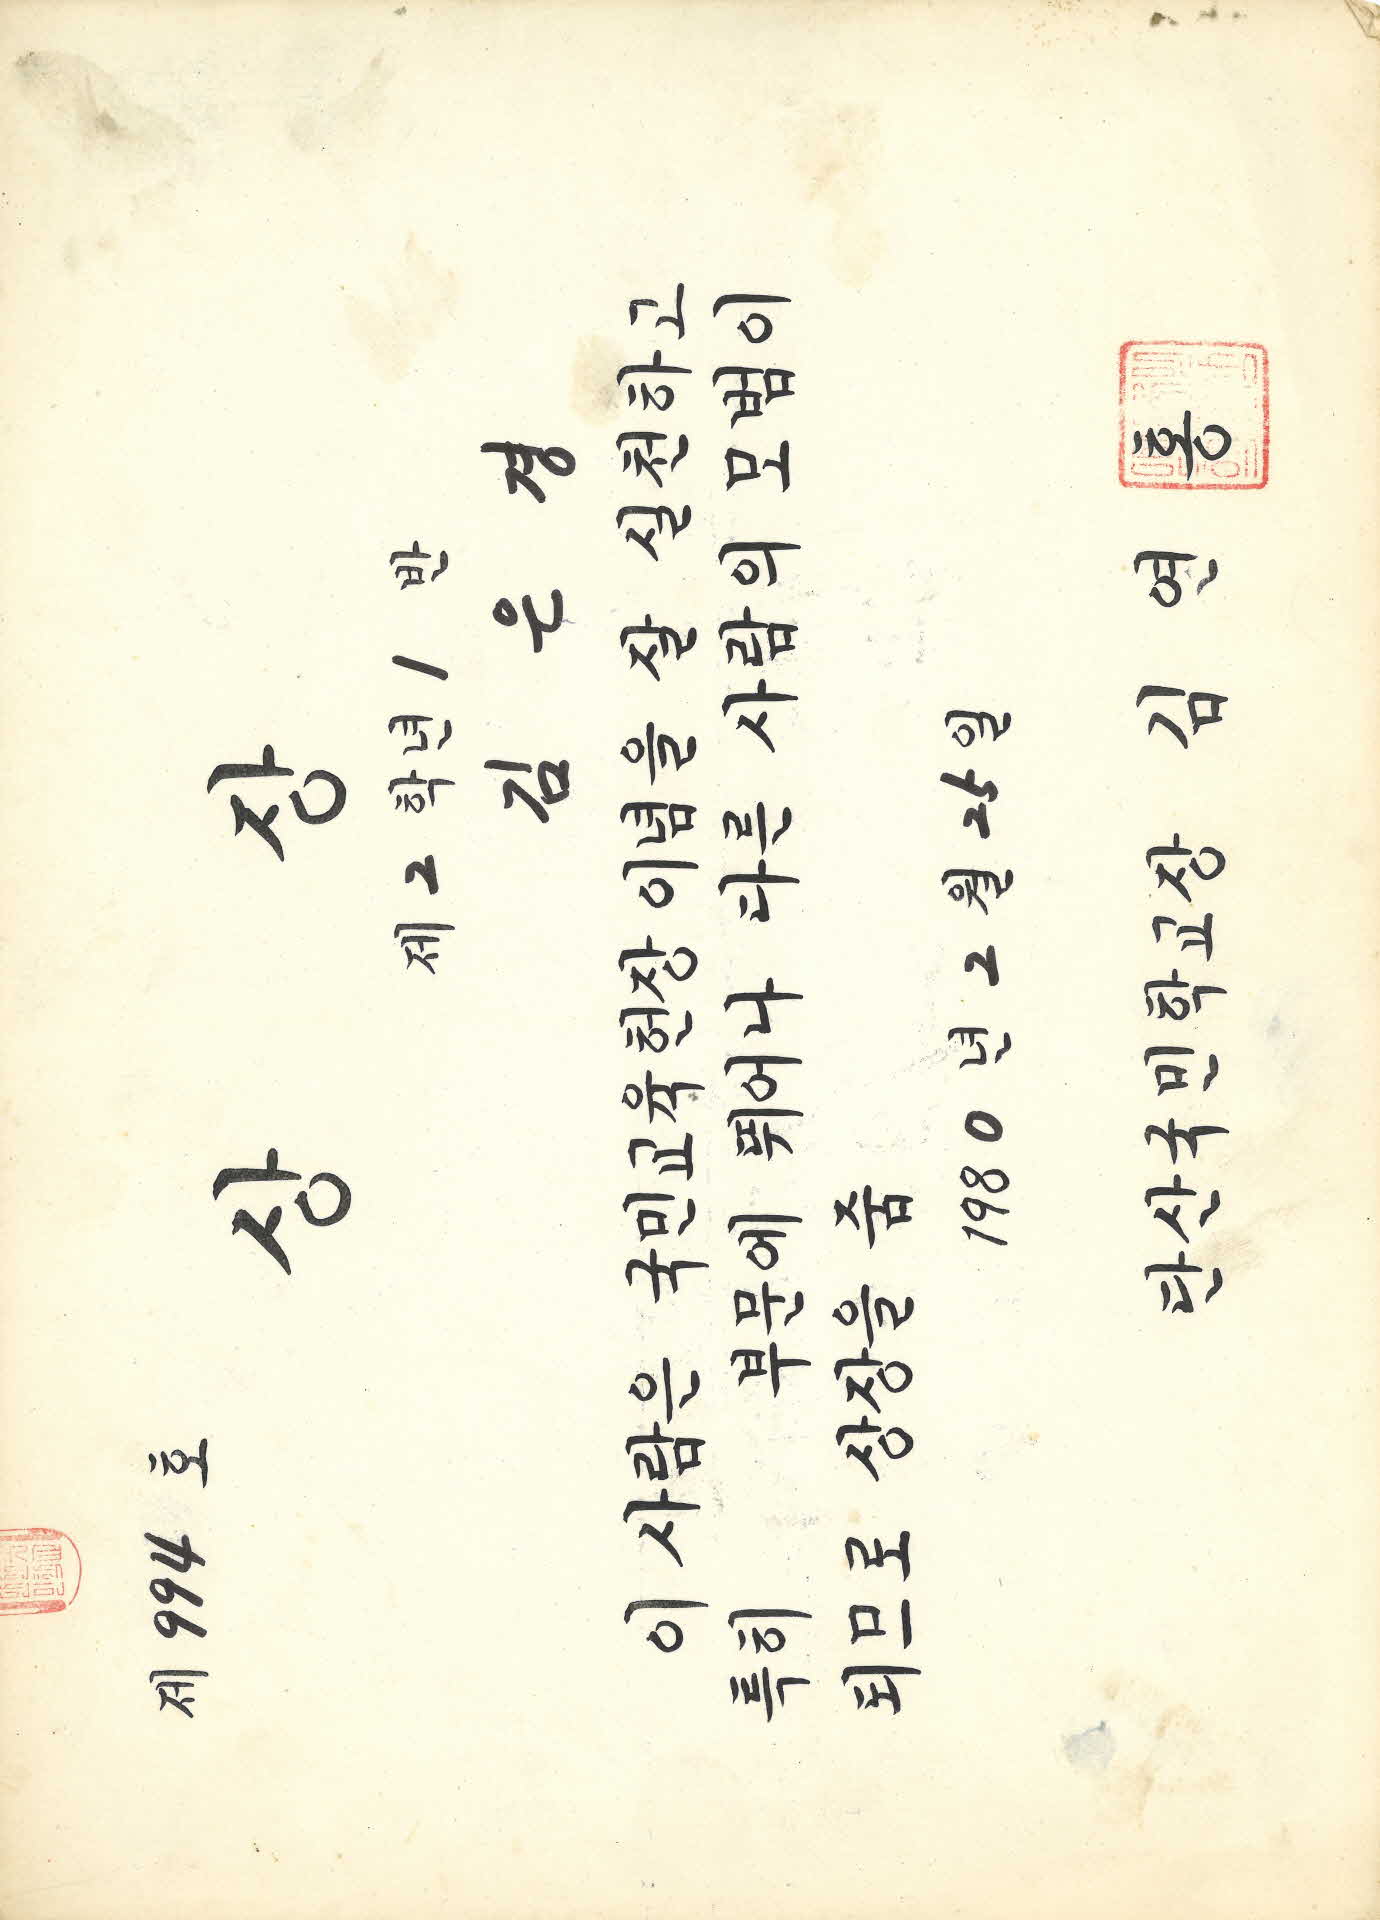 제 994 호
상 장
제 2 학년 1 반
김 은 경
이 사람은 국민교육헌장 이념을 잘 실천하고
특히 부문에 뛰어나 다른 사람의 모범이
되므로 상장을 줌
1980 년 2 월 25 일
단산국민학교장 김 연 홍